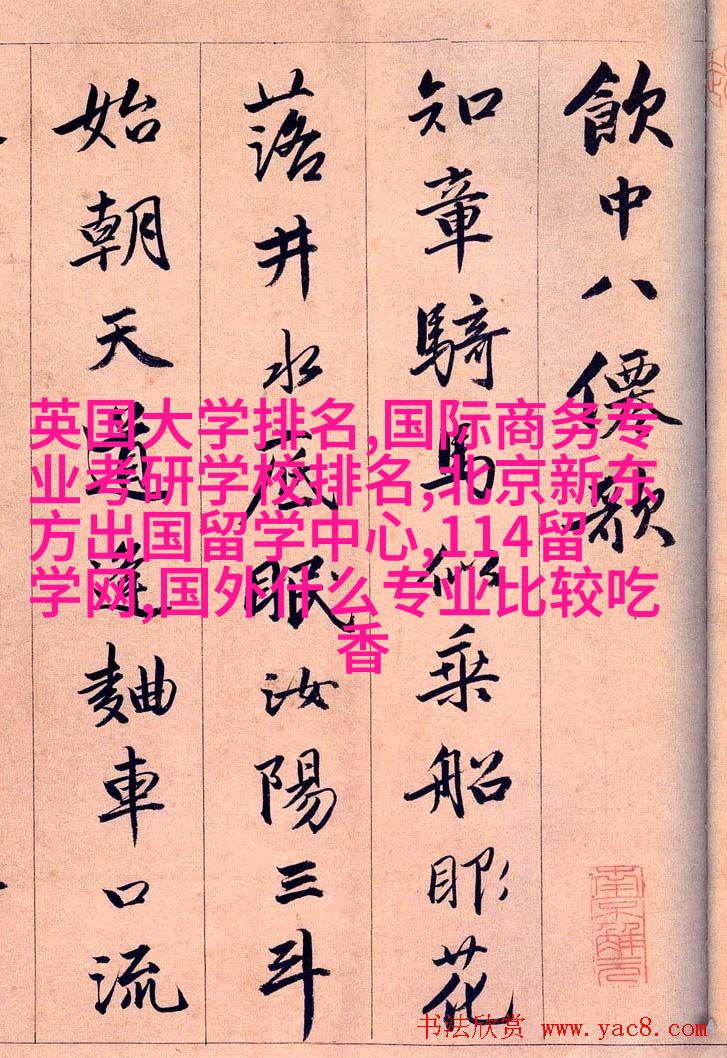 飲中八僊歌
知章騎馬似乘船眼花
落井水底眠汝陽三斗
始朝天道逢麯車口流
英国大学排名,国际商务专
业考研学校排名,北京新东
方出国留学中心,114留
学网,国外什么专业比较吃
香
南京解元
书法欣赏 www.yac8.com